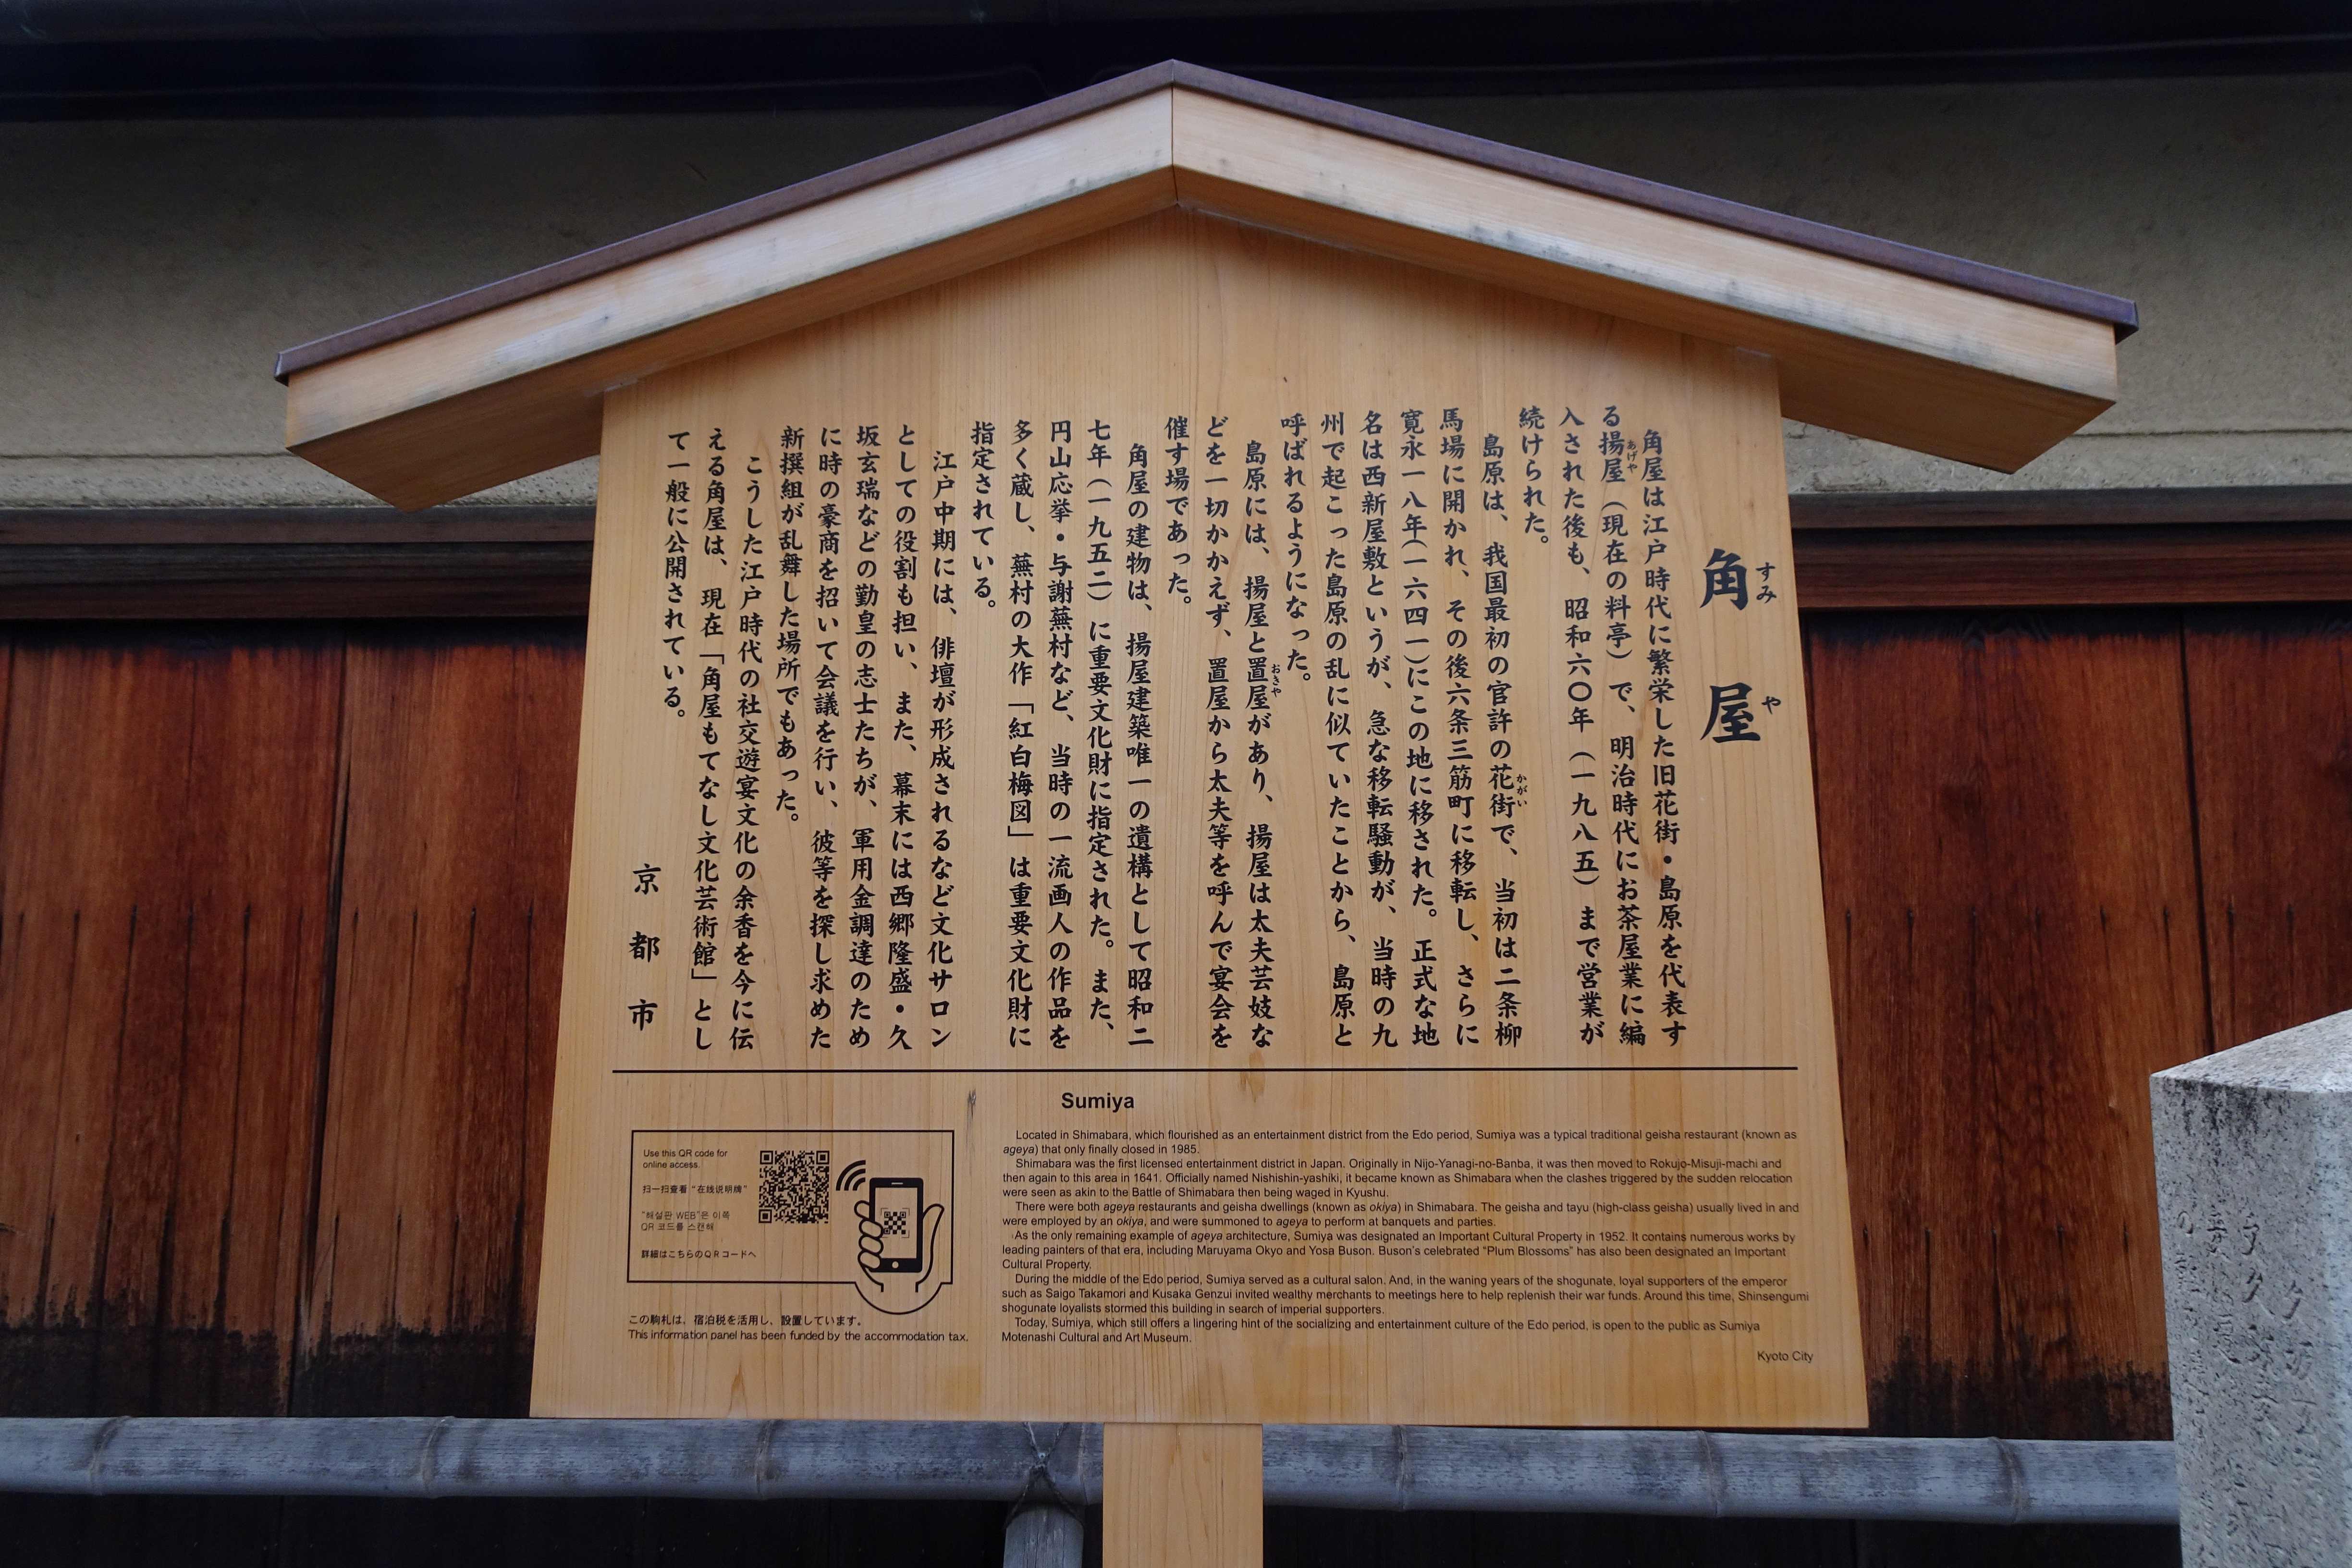 角屋
すみ や
角屋は江戸時代に繁栄した旧花街・島原を代表す
る揚屋（現在の料亭）で、明治時代にお茶屋業に編
あげや
入された後も、昭和六〇年（一九八五）まで営業が
続けられた。
島原は、我国最初の官許の花街で、当初は二条柳
かがい
馬場に開かれ、その後六条三筋町に移転し、さらに
寛永一八年（一六四一）にこの地に移された。正式な地
名は西新屋敷というが、急な移転騒動が、当時の九
州で起こった島原の乱に似ていたことから、島原と
呼ばれるようになった。
島原には、揚屋と置屋があり、揚屋は太夫芸妓な
おきや
どを一切かかえず、置屋から太夫等を呼んで宴会を
催す場であった。
角屋の建物は、揚屋建築唯一の遺構として昭和二
七年（一九五二）に重要文化財に指定された。また、
円山応挙・与謝蕪村など、当時の一流画人の作品を
多く蔵し、蕪村の大作「紅白梅図」は重要文化財に
指定されている。
江戸中期には、俳壇が形成されるなど文化サロン
としての役割も担い、また、幕末には西郷隆盛・久
坂玄瑞などの勤皇の志士たちが、軍用金調達のため
に時の豪商を招いて会議を行い、彼等を探し求めた
新撰組が乱舞した場所でもあった。
こうした江戸時代の社交遊宴文化の余香を今に伝
える角屋は、現在「角屋もてなし文化芸術館」とし
て一般に公開されている。
京都市
Sumiya
Located in Shimabara, which flourished as an entertainment district from the Edo period, Sumiya was a typical traditional geisha restaurant (known as
ageya) that only finally closed in 1985.
Shimabara was the first licensed entertainment district in Japan. Originally in Nijo-Yanagi-no-Banba, it was then moved to Rokujo-Misuji-machi and
then again to this area in 1641. Officially named Nishishin-yashiki, it became known as Shimabara when the clashes triggered by the sudden relocation
were seen as akin to the Battle of Shimabara then being waged in Kyushu.
There were both ageya restaurants and geisha dwellings (known as okiya) in Shimabara. The geisha and tayu (high-class geisha) usually lived in and
were employed by an okiya, and were summoned to ageya to perform at banquets and parties.
As the only remaining example of ageya architecture, Sumiya was designated an Important Cultural Property in 1952. It contains numerous works by
leading painters of that era, including Maruyama Okyo and Yosa Buson. Buson's celebrated "Plum Blossoms" has also been designated an Important
Cultural Property.
During the middle of the Edo period, Sumiya served as a cultural salon. And, in the waning years of the shogunate, loyal supporters of the emperor
such as Saigo Takamori and Kusaka Genzui invited wealthy merchants to meetings here to help replenish their war funds. Around this time, Shinsengumi
shogunate loyalists stormed this building in search of imperial supporters.
Today, Sumiya, which still offers a lingering hint of the socializing and entertainment culture of the Edo period, is open to the public as Sumiya
Motenashi Cultural and Art Museum.
Kyoto City
Use this QR code for
online access.
扫一扫查看 "在线说明牌"
"해설판 WEB"은 이쪽
QR 코드를 스캔해
詳細はこちらのＱＲコードへ
この駒札は、宿泊税を活用し、設置しています。
This information panel has been funded by the accommodation tax.